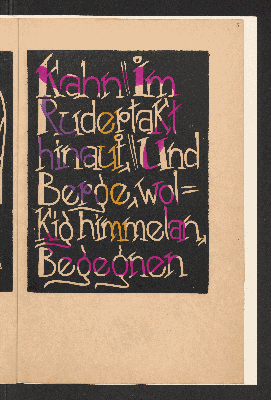 Kahn || Im
Rudertakt
hinauf, || Und
Berge, wol=
Kig himmelan,
Begegnen